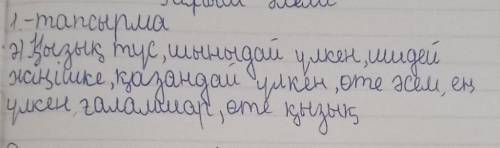 1.-тапсырма
ә) Қызық түс, шыныдай үлкен, мидей
жіңішке, қазандай үлкен, өте әсем, ең
үлкен, ғаламшар, өте қызық